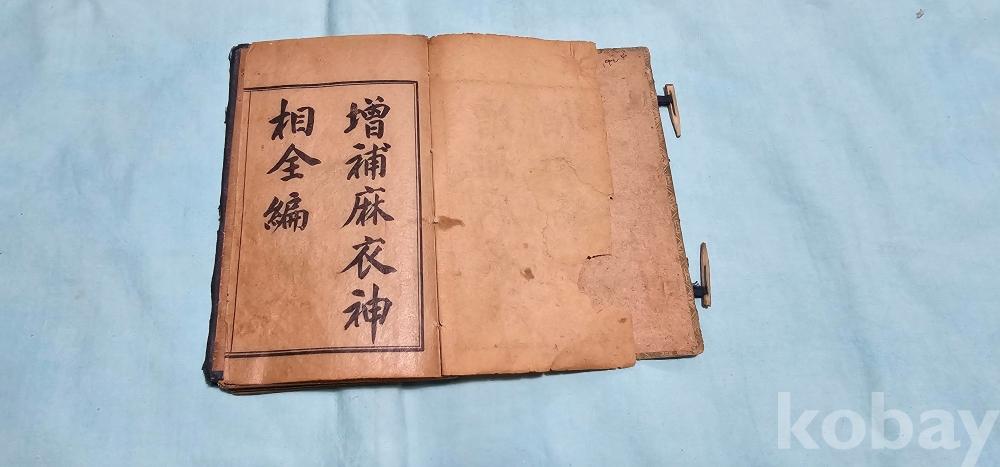 增補麻衣神
相全編
kobay